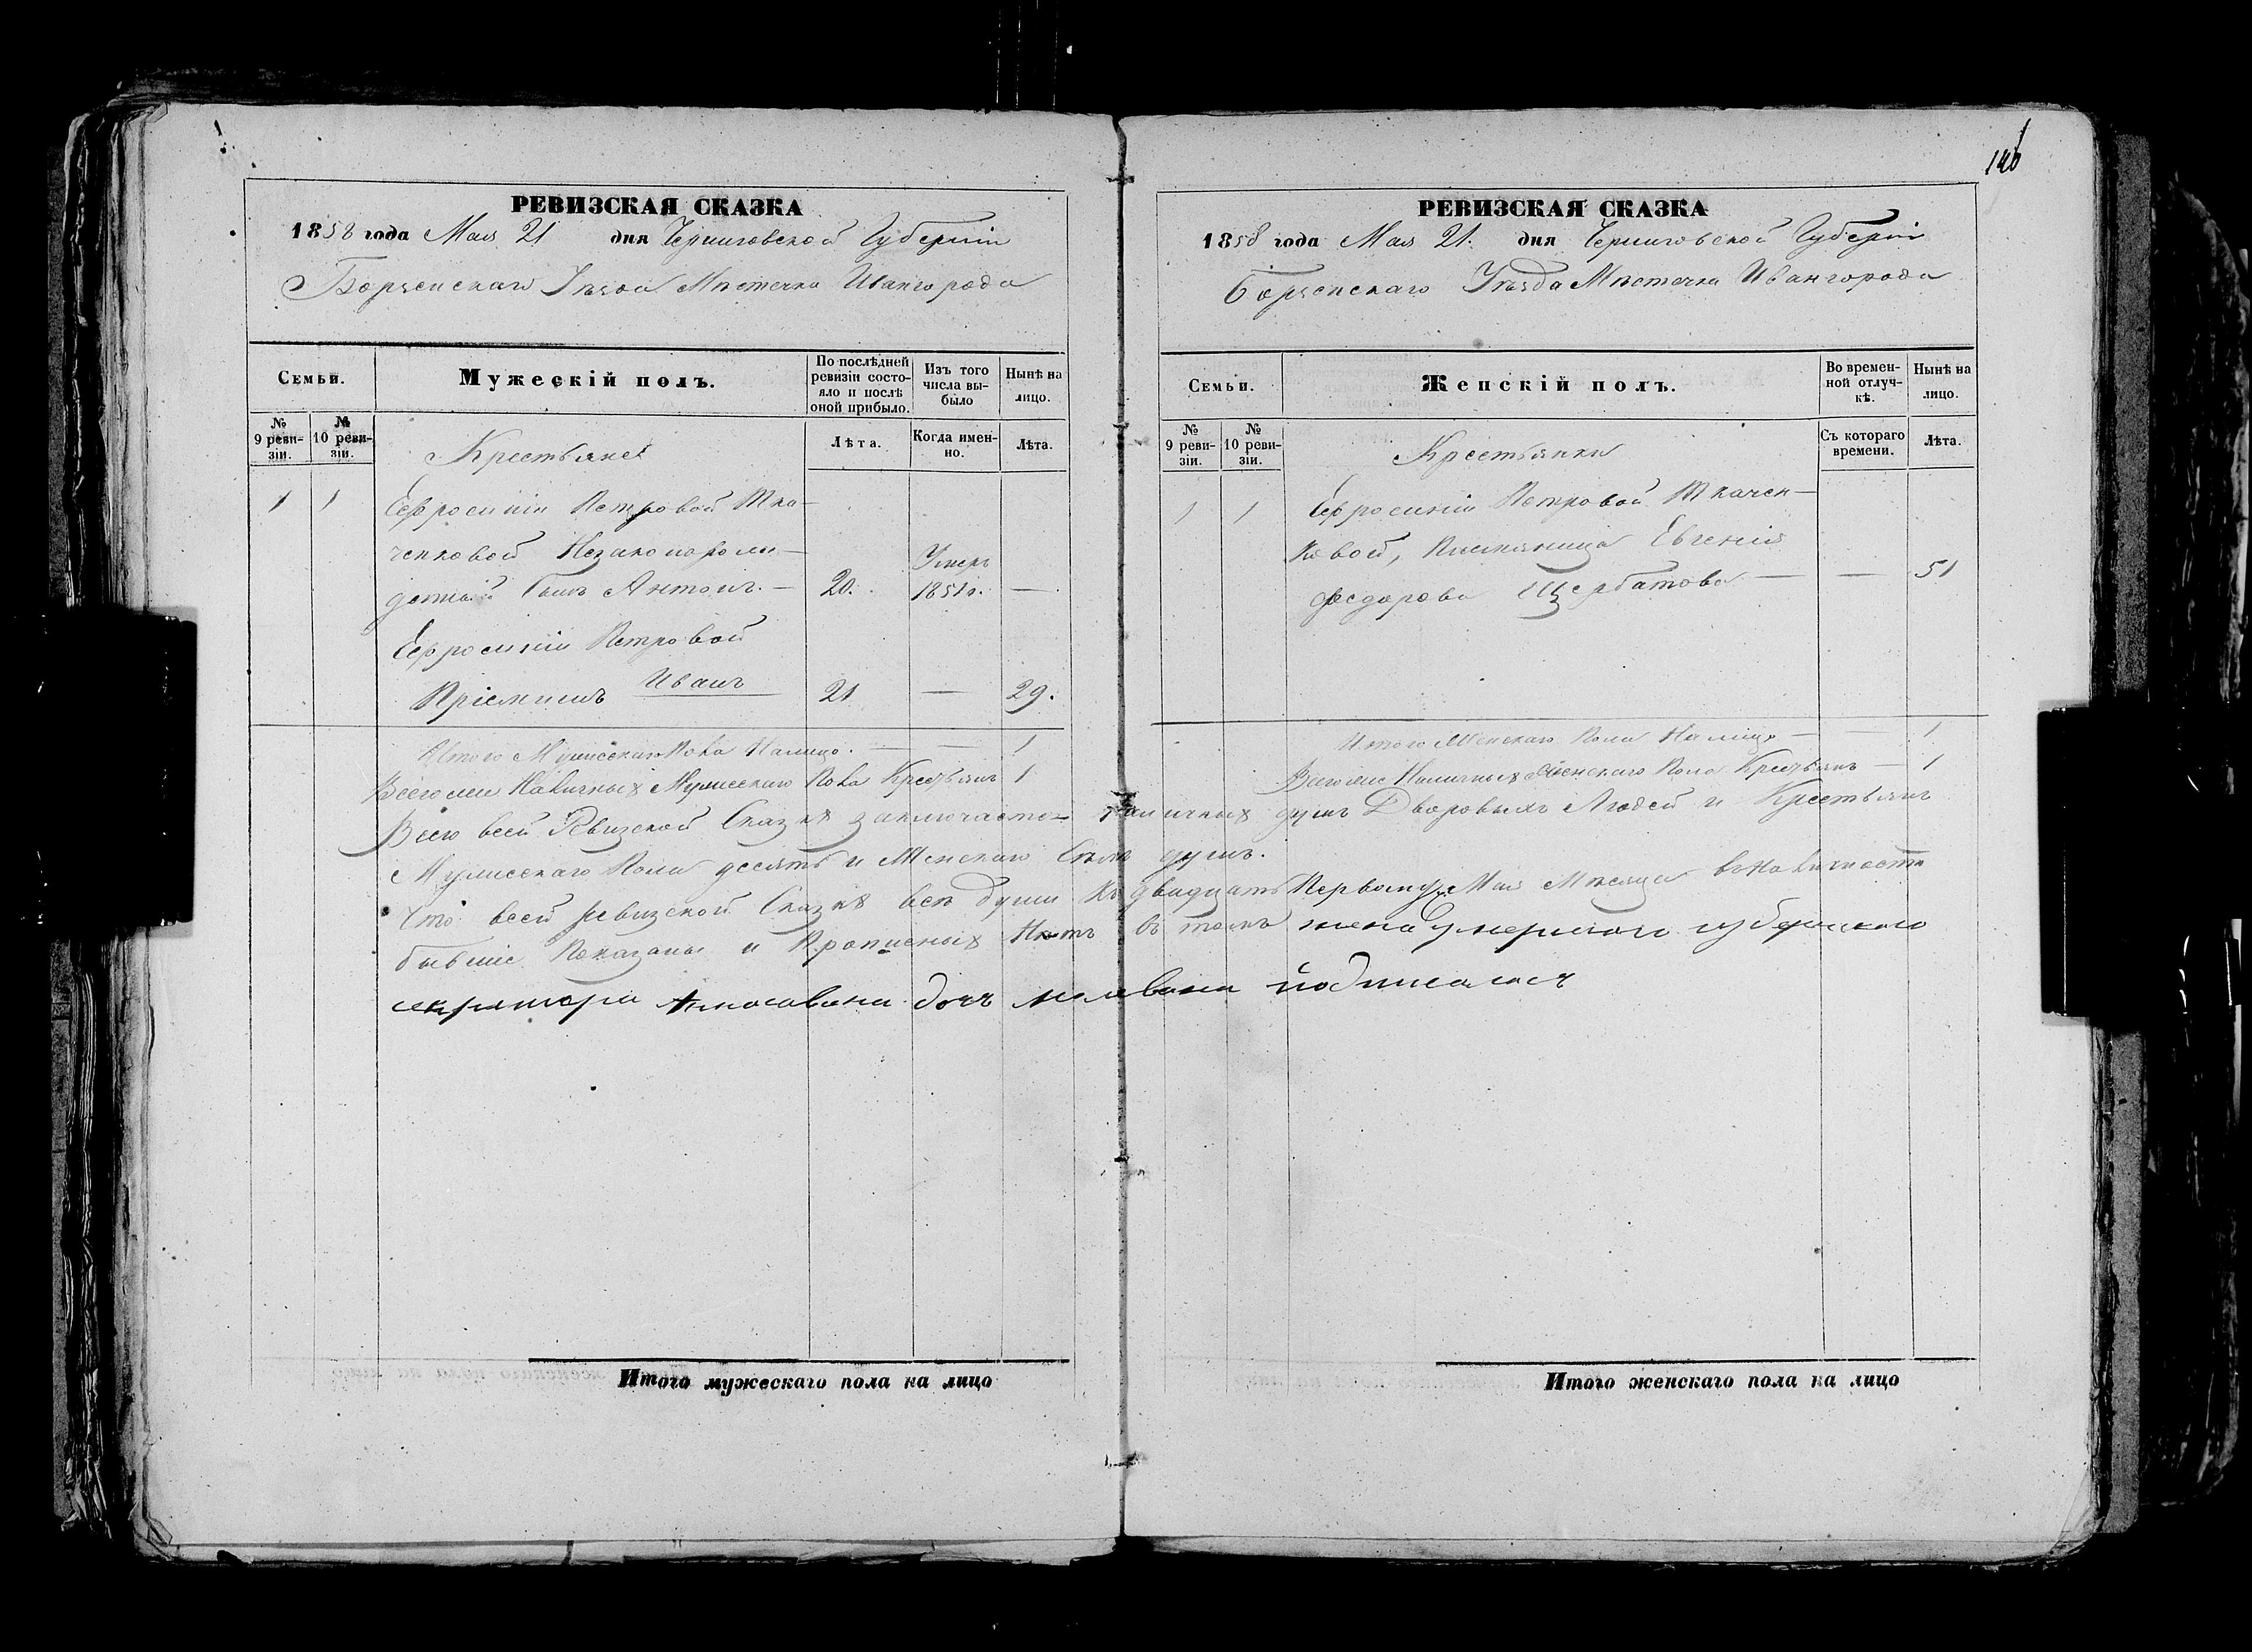 РЕВИЗСКАЯ СКАЗКА
1858 года Мая 21 дня Черниговской Губерніи
Борзенскаго Уѣзда Мѣстечка Ивангорода
Семьи.
Мужескій полъ.
По послѣдней ревизіи состояло и послѣ оной прибыло.
Изъ того числа выбыло
Нынѣ на лицо.
№ 9 ревизіи.
№ 10 ревизіи.
Крестьяне
Лѣта.
Когда именно.
Лѣта.
1 1 Ефросиніи Петровой Тка-
ченковой Незаконорож-
денный Сынъ Антонъ. — 20. Умеръ 1851 г. —
Ефросиніи Петровой
Пріемышъ Иванъ 21 — 29.
Итого Мужескаго Пола Налицо. — — 1
Всего же Наличныхъ Мужескаго Пола Крестьянъ 1
146
РЕВИЗСКАЯ СКАЗКА
1858 года Мая 21. дня Черниговской Губерніи
Борзенскаго Уѣзда Мѣстечка Ивангорода
Семьи.
Женскій полъ.
Во временной отлучкѣ.
Нынѣ на лицо.
№ 9 ревизіи.
№ 10 ревизіи.
Крестьянки
Съ котораго времени.
Лѣта.
1 1 Ефросиніи Петровой Ткачен-
ковой, Племяница Евгенія
Федорова Щербатова — — 51
Итого Женскаго Пола Налицо — — 1
Всего же Наличныхъ Женскаго Пола Крестьянъ — 1
Всего всей Ревизской Сказкѣ заключается наличныхъ душъ Дворовыхъ Людей и Крестьянъ
Мужескаго Пола десять и Женскаго душъ.
Что всей ревизской Сказкѣ всѣ души къ двадцать Первому Мая Мѣсяца въ Наличности
бывшіе Показаны и Прописныхъ Нѣтъ въ томъ жена умершаго губернскаго
секретаря дочь подписалась
Итого мужескаго пола на лицо
Итого женскаго пола на лицо